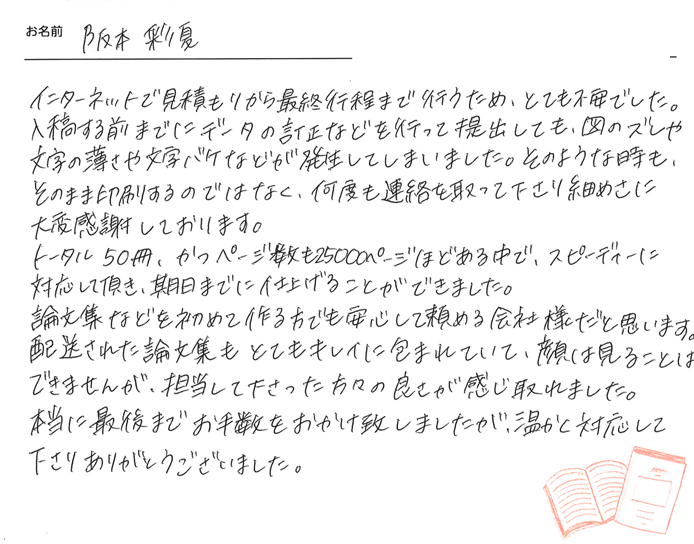 お名前 阪本 彩夏
インターネットで見積もりから最終行程まで行うため、とても不安でした。
入稿する前までにデータの訂正などを行って提出しても、図のズレや
文字の薄さや文字バケなどが発生してしまいました。そのような時も、
そのまま印刷するのではなく、何度も連絡を取って下さり細めさに
大変感謝しております。
トータル50冊、かつページ数も25000ページほどある中で、スピーディーに
対応して頂き、期日までに仕上げることができました。
論文集などを初めて作る方でも安心して頼める会社様だと思います。
配送された論文集もとてもキレイに包まれていて、顔は見ることは
できませんが、担当して下さった方々の良さが感じ取れました。
本当に最後までお手数をおかけ致しましたが、温かく対応して
下さりありがとうございました。